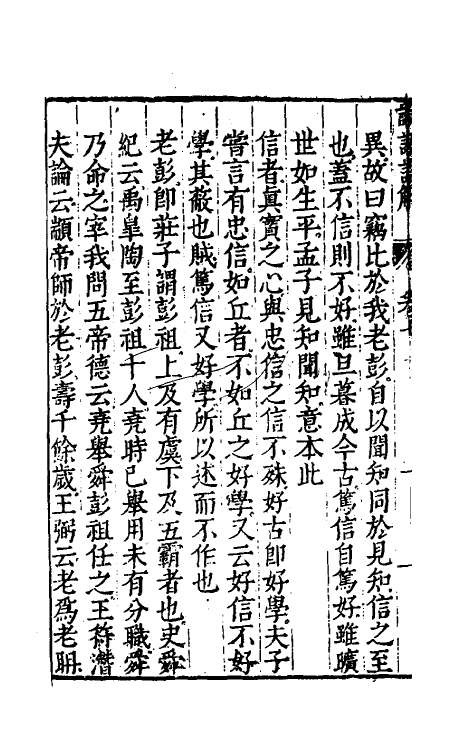 異故曰竊比於我老彭自以聞知同於見知信之至
也蓋不信則不好雖旦暮成今古篤信自篤好雖曠
世如生平孟子見知聞知意本此
信者眞實之心與忠信之信不殊好古即好學夫子
嘗言有忠信如丘者不如丘之好學又云好信不好
學其蔽也賊篤信又好學所以述而不作也
老彭即莊子謂彭祖上及有虞下及五霸者也史舜
紀云禹皐陶至彭祖十人堯時已舉用未有分職舜
乃命之宰我問五帝德云堯舉舜彭祖任之王符潛
夫論云顓帝師於老彭壽千餘歲王弼云老爲老聃